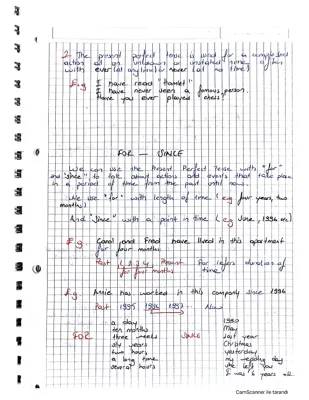 2- The present perfect tense is used for a completed
action at an unknown or unstated time, often
with ever (at any time) or never (at no time)
E.g I have read "Hamlet".
I have never seen a famous person.
Have you ever played chess?
FOR — SINCE
We can use the Present Perfect Tense with "for"
and "since", to talk about actions and events that take place
in a period of time from the past until now.
We use "for" with length of time (eg four years, two
months)
And "since" with a point in time (eg June, 1994 etc)
E.g. Carol and Fred have lived in this apartment
for four months
Past 1 2 3 4 Present For refers duration of
for four months time
E.g. Annie has worked in this company since 1996
Past 1995 1996 1997 Now
FOR SINCE
a day 1980
ten months May
three weeks last year
six years Christmas
two hours yesterday
a long time my wedding day
several hours she left you
I was 6 years old
CamScanner ile tarandı